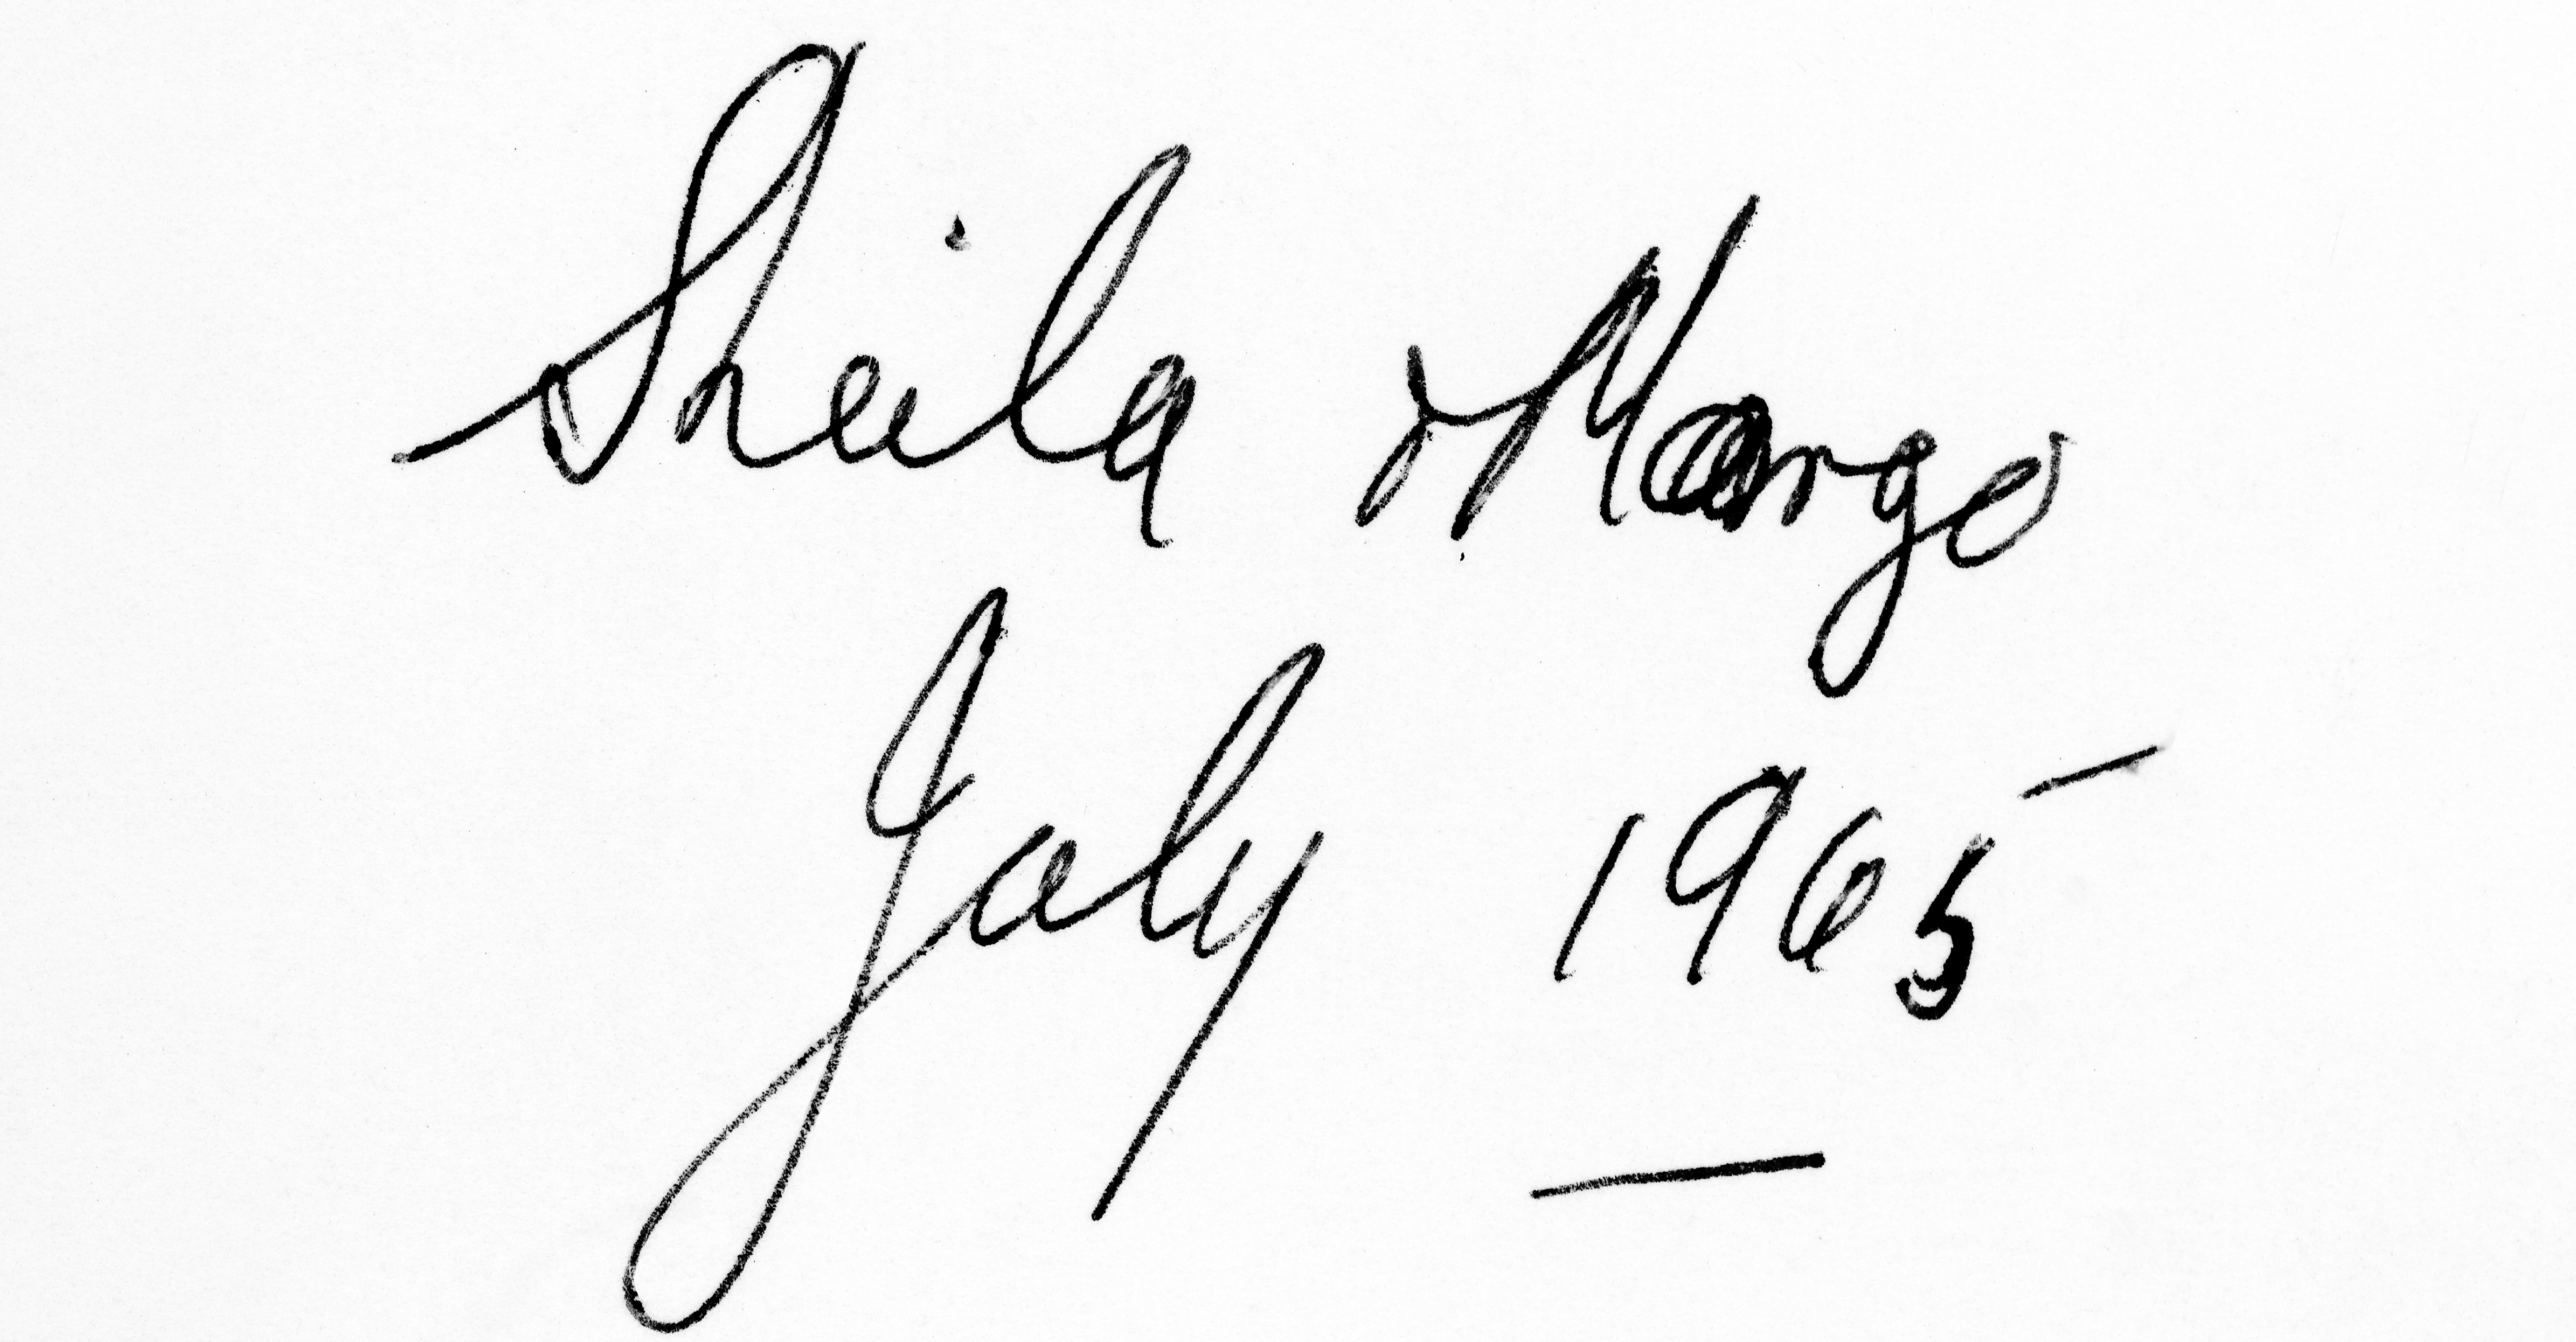 Sheila & Margo
July 1965